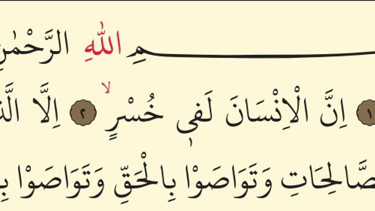 ـمِ اللّٰهِ الرَّحْمٰنِ
١ اِنَّ الْاِنْسَانَ لَفٖى خُسْرٍۙ ٢ اِلَّا
ـصَّالِحَاتِ وَتَوَاصَوْا بِالْحَقِّ وَتَوَاصَوْا